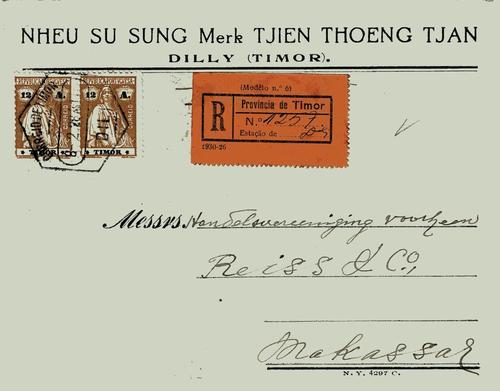 NHEU SU SUNG Merk TJIEN THOENG TJAN
DILLY (TIMOR).
REPUBLICA PORTUGUESA REPUBLICA PORTUGUESA
12 A. 12 A.
TIMOR TIMOR
(Modêlo n.º 6)
Província de Timor
R
N.º 4257
Estação de
1930-26
Messrs Handelsvereeniging voorheen
Reiss & Co,
Makassar
N. Y. 4297 C.